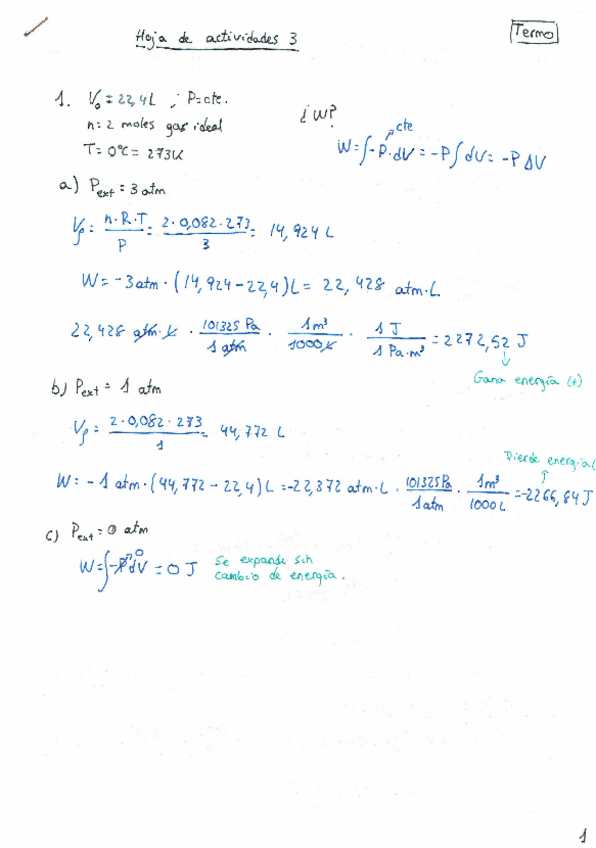 Hoja de actividades 3
Termo
1. V₀ = 22,4 L ; P=cte.
n = 2 moles gas ideal
T = 0ºC = 273K
¿W?
cte
W = ∫-P·dV = -P∫dV = -P ΔV
a) Pext = 3 atm
Vf = n·R·T / P = 2·0,082·273 / 3 = 14,924 L
W = -3 atm · (14,924 - 22,4) L = 22,428 atm·L
22,428 atm·L · 101325 Pa / 1 atm · 1 m³ / 1000 L · 1 J / 1 Pa·m³ = 2272,52 J
Gana energía (+)
b) Pext = 1 atm
Vf = 2·0,082·273 / 1 = 44,772 L
Pierde energía (
W = -1 atm · (44,772 - 22,4) L = -22,372 atm·L · 101325 Pa / 1 atm · 1 m³ / 1000 L = -2266,84 J
c) Pext = 0 atm
W = ∫-P dV = 0 J
0
Se expande sin
cambio de energía.
1